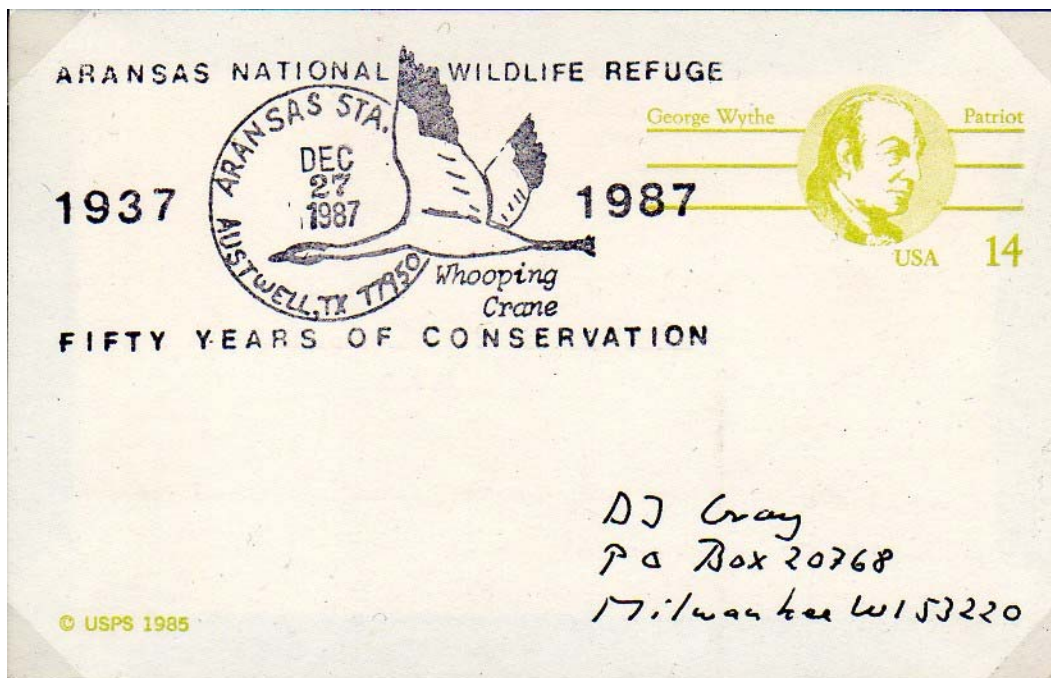 ARANSAS NATIONAL WILDLIFE REFUGE
George Wythe Patriot
ARANSAS STA.
DEC
27
1987
AUSTWELL, TX 77950
1937 1987
USA 14
Whooping
Crane
FIFTY YEARS OF CONSERVATION
DJ Gray
PO Box 20768
Milwaukee WI 53220
© USPS 1985